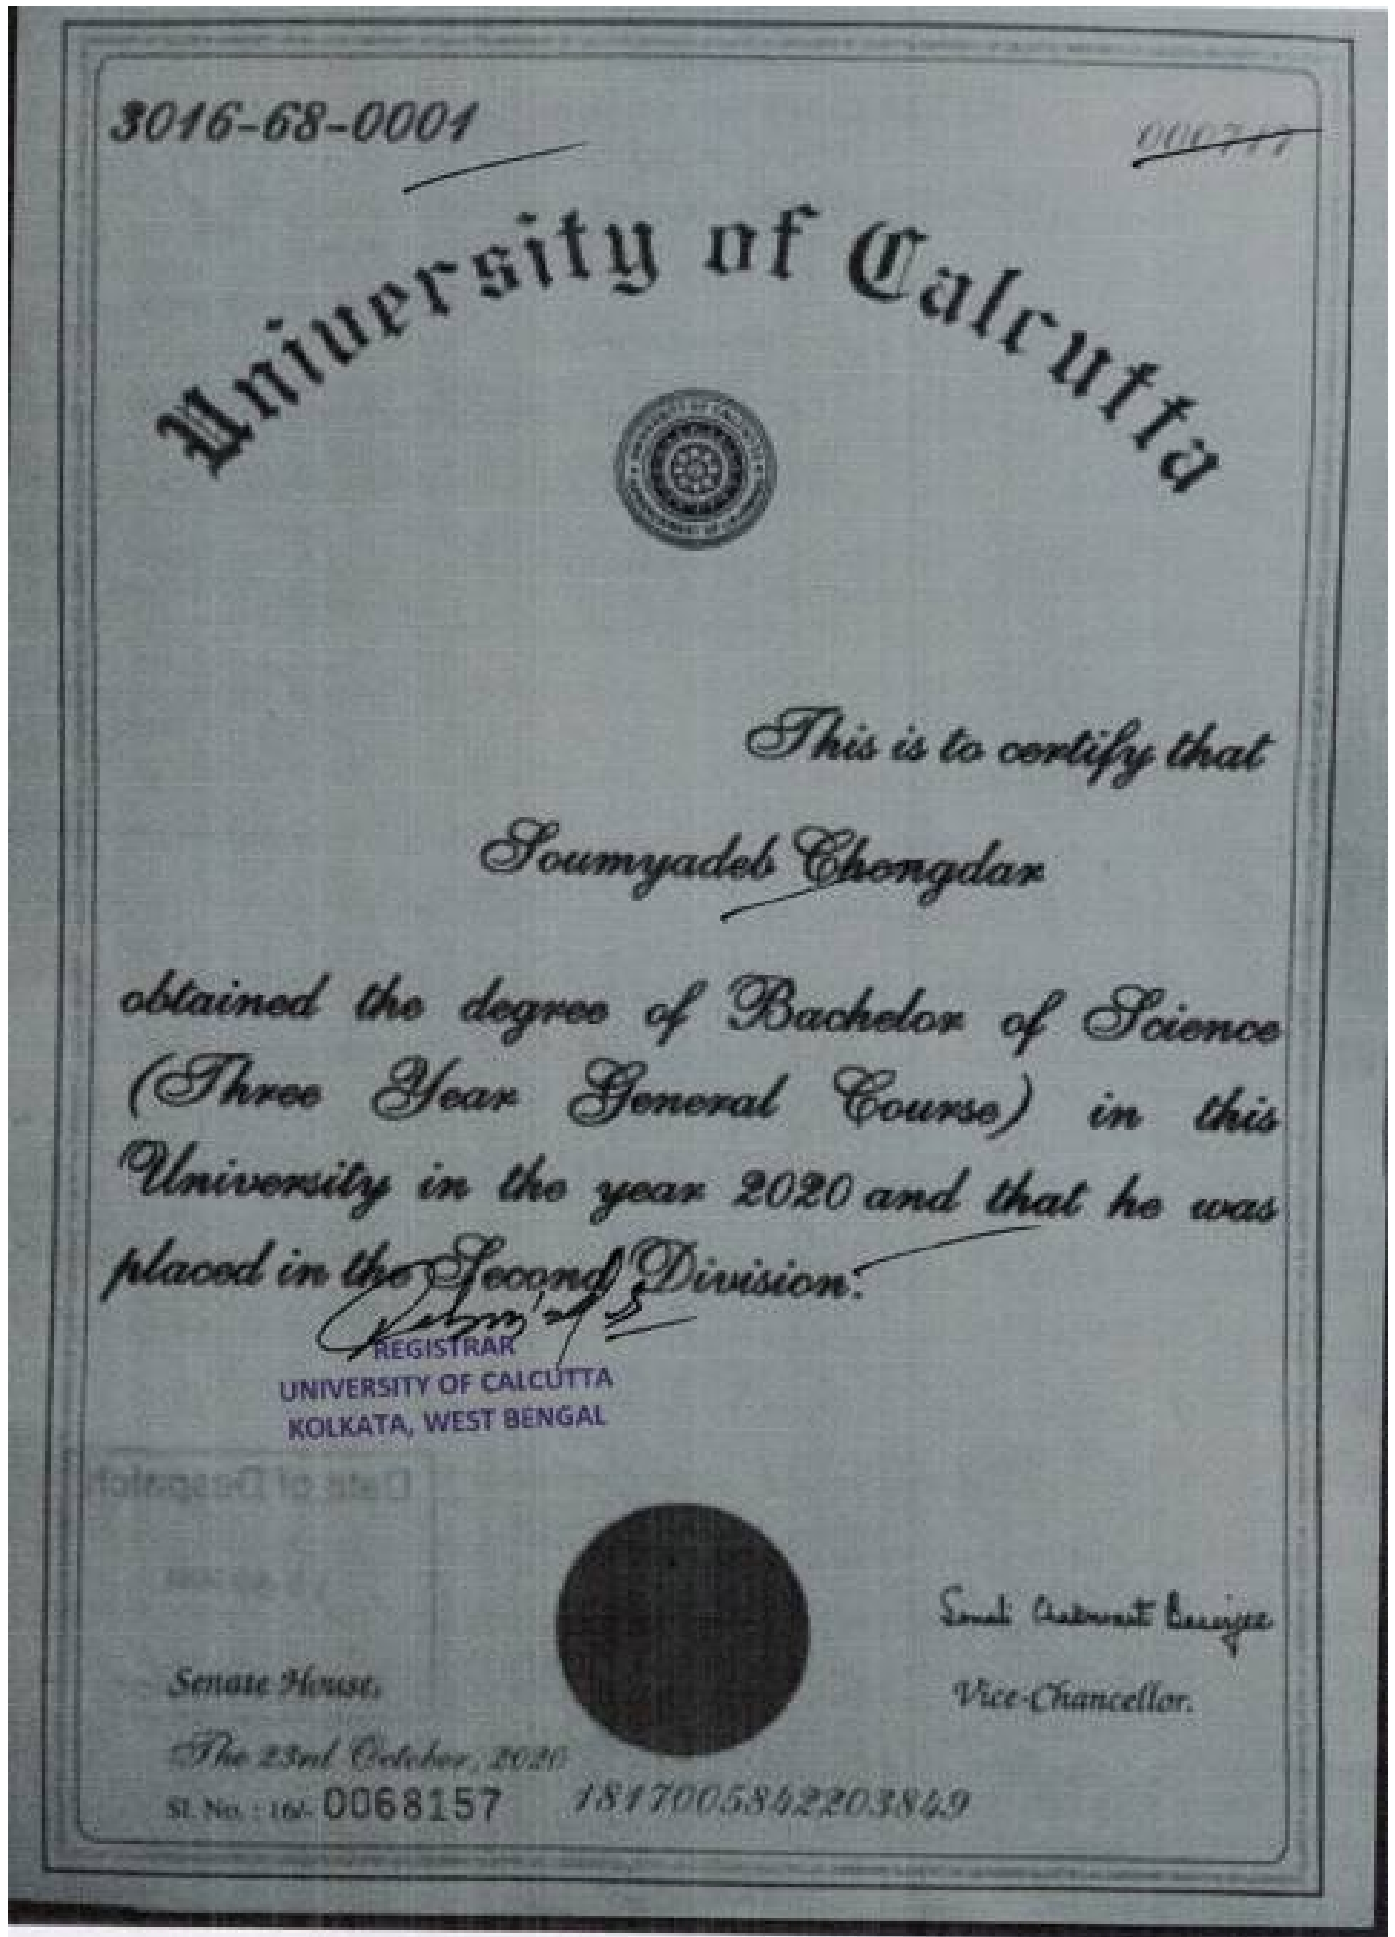 3016-68-0001
University of Calcutta
This is to certify that
Soumyadeb Chongdar
obtained the degree of Bachelor of Science
(Three Year General Course) in this
University in the year 2020 and that he was
placed in the Second Division.
REGISTRAR
UNIVERSITY OF CALCUTTA
KOLKATA, WEST BENGAL
Date of Despatch
Senate House,
Vice-Chancellor.
The 23rd October, 2020
Sl. No. : 16/- 0068157
1817005842203849